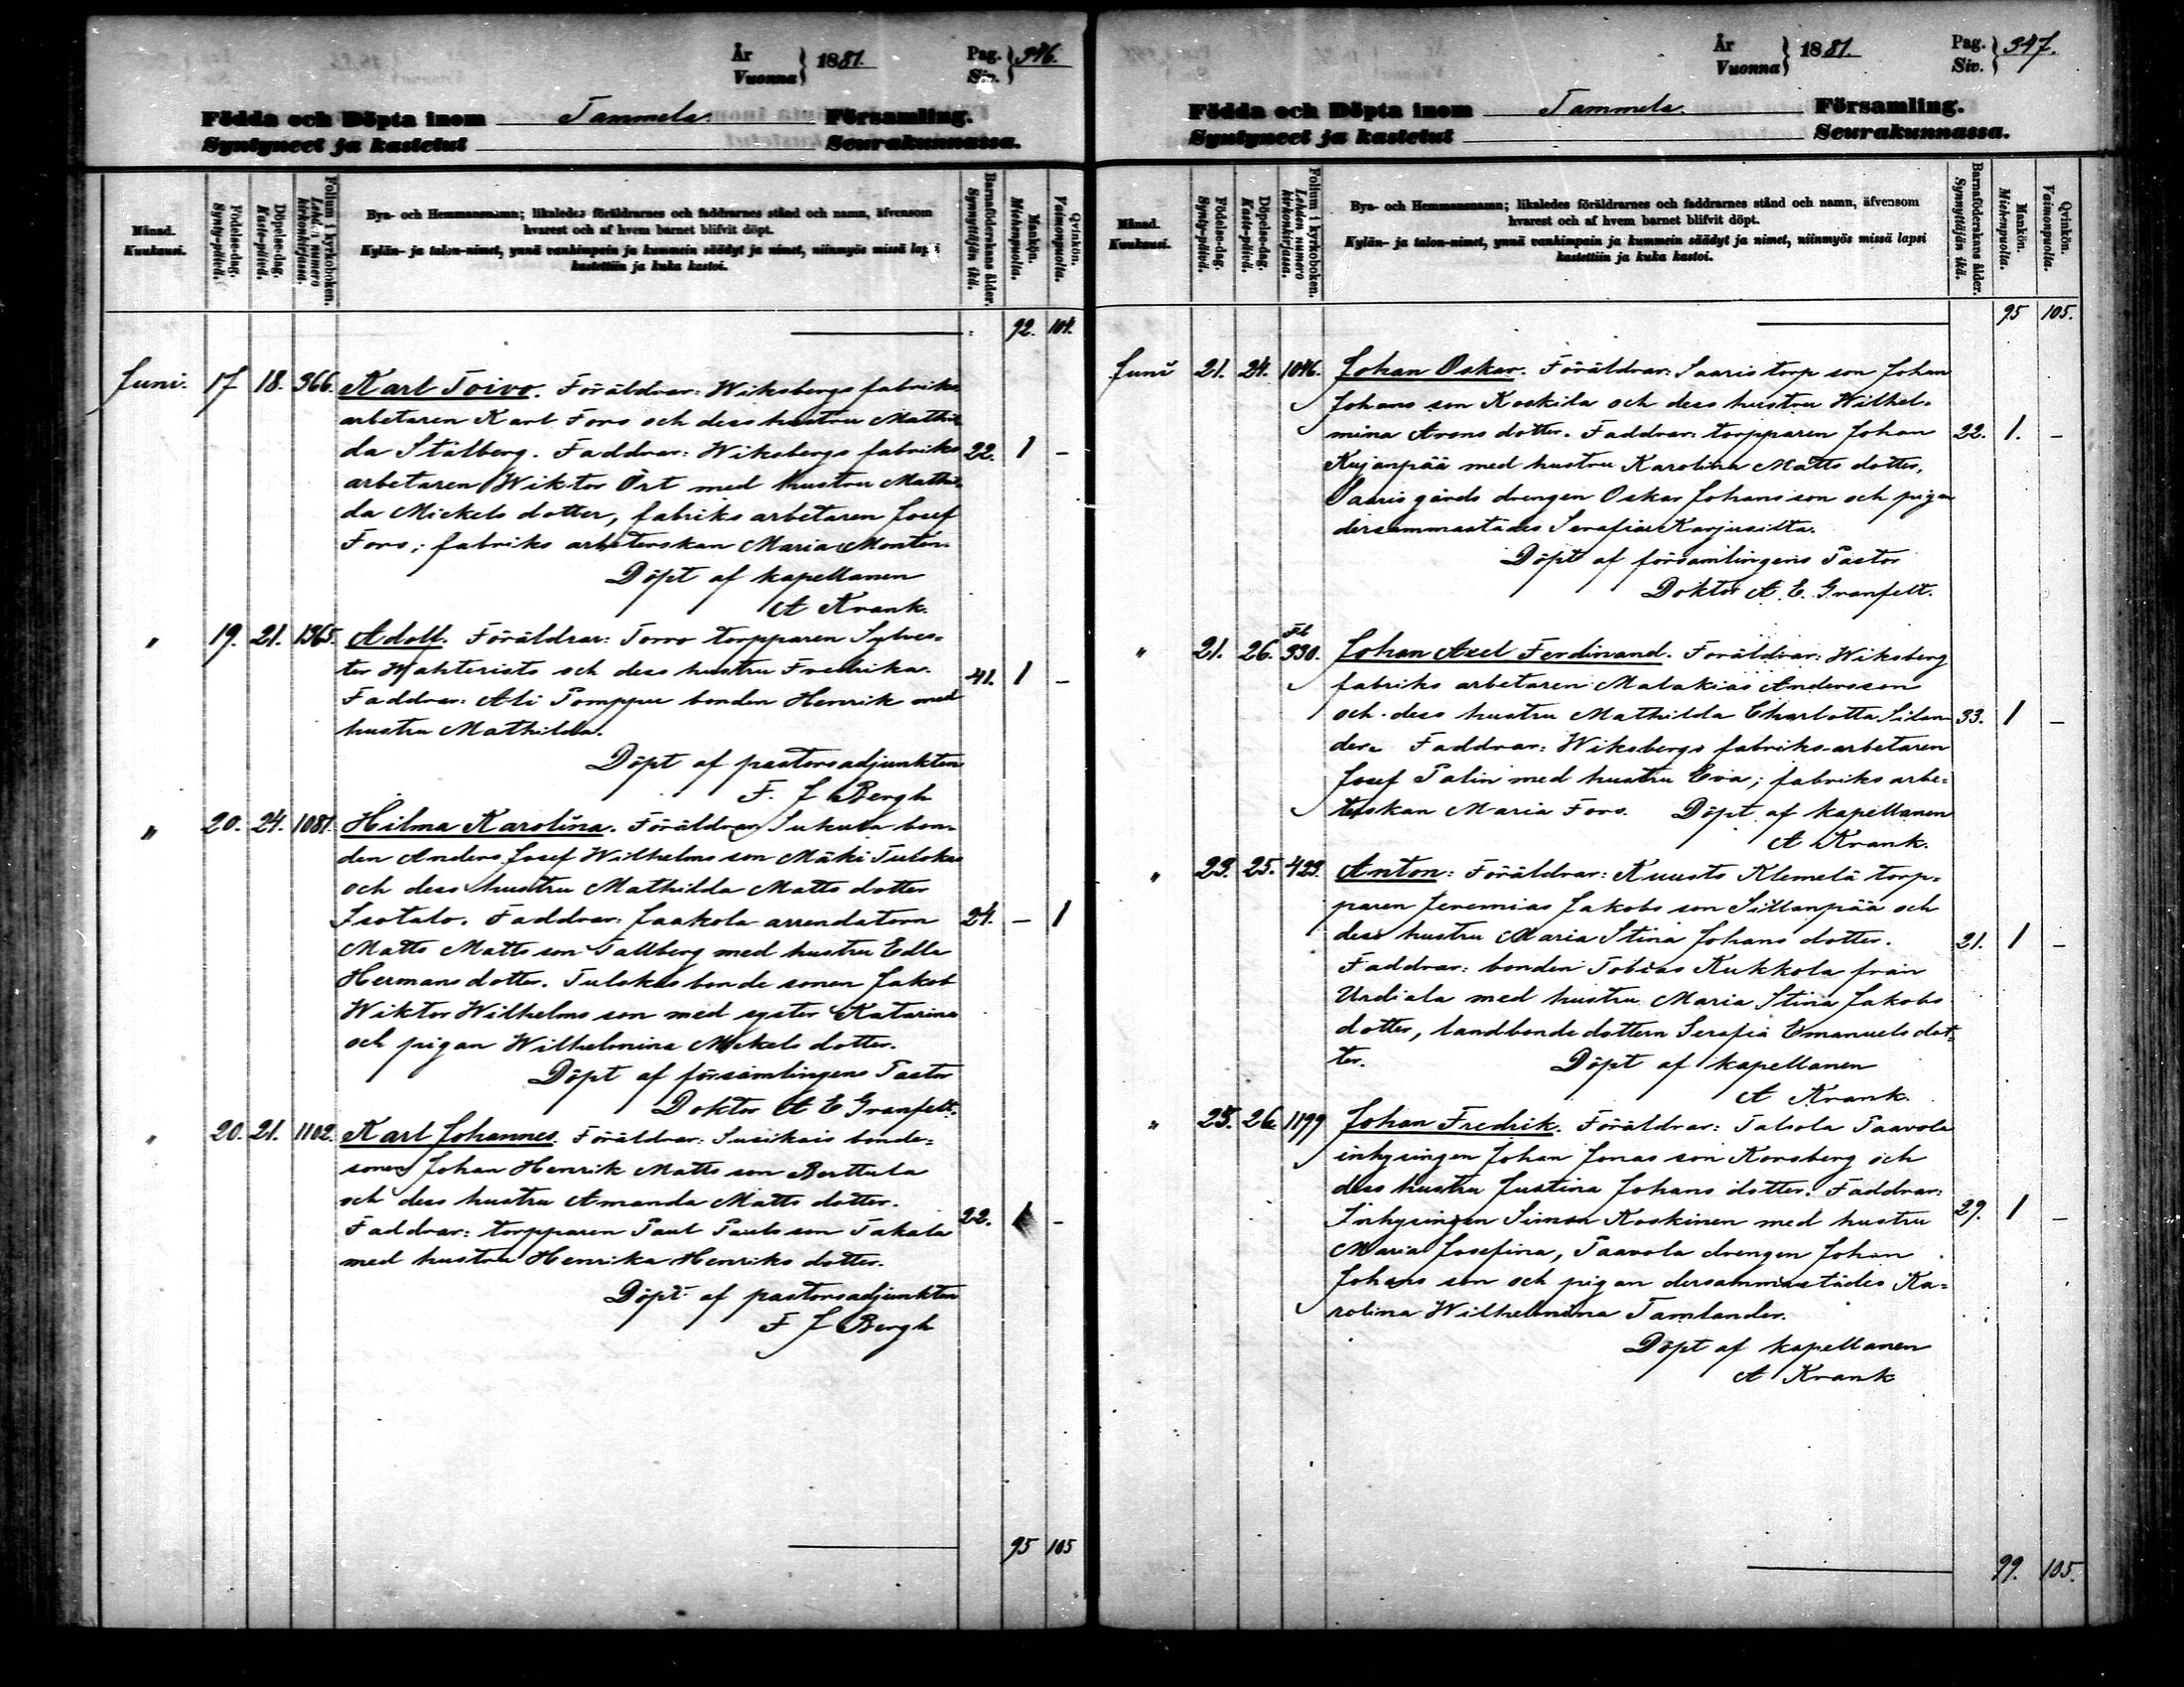 År
Vuonna } 1881.
Pag.
Siv. } 346.
Födda och Döpta inom Tammela. Församling.
Syntyneet ja kastetut Seurakunnassa.
Månad.
Kuukausi.
Födelse-dag.
Synty-päivä.
Döpelse-dag.
Kaste-päivä.
Folium i kyrkoboken.
Lehden numero
kirkonkirjassa.
Bya- och Hemmansnamn; likaledes föräldrarnes och faddrarnes stånd och namn, äfvensom
hvarest och af hvem barnet blifvit döpt.
Kylän- ja talon-nimet, ynnä vanhimpain ja kummein säädyt ja nimet, niinmyös missä lapsi
kastettiin ja kuka kastoi.
Barnaföderskans ålder.
Synnyttäjän ikä.
Mankön.
Miehenpuolta.
Qvinkön.
Vaimonpuolta.
92. 104.
Juni. 17 18. 366. Karl Toivo. Föräldrar: Wiksbergs fabriks
arbetaren Karl Fors och dess hustru Mathil
da Stålberg. Faddrar: Wiksbergs fabriks 22. 1 –
arbetaren Wiktor Ört med hustru Mathil
da Mickels dotter, fabriks arbetaren Josef
Fors; fabriks arbeterskan Maria Montén.
Döpt af kapellanen
A Krank.
" 19. 21. 1365. Adolf. Föräldrar: Torro torpparen Sylves=
ter Wahteristo och dess hustru Fredrika. 41. 1 –
Faddrar: Ali Pomppu bonden Henrik med
hustru Mathilda.
Döpt af pastorsadjunkten
F. J Bergh
" 20. 24. 1081. Hilma Karolina. Föräldrar Sukula bon=
den Anders Josef Wilhelms son Mäki Tulokas
och dess hustru Mathilda Matts dotter
Isotalo. Faddrar: Jaakola arrendatorn 24. – 1
Matts Matts son Tallberg med hustru Edla
Hermans dotter. Tulokas bonde sonen Jakob
Wiktor Wilhelms son med syster Katarina
och pigan Wilhelmina Mickels dotter.
Döpt af församlingens Pastor
Doktor A E Granfelt.
" 20. 21. 1102. Karl Johannes. Föräldrar: Susikais bonde=
sonen Johan Henrik Matts son Berttula
och dess hustru Amanda Matts dotter.
Faddrar: torpparen Paul Pauls son Takala 22. 1 –
med hustru Henrika Henriks dotter.
Döpt af pastorsadjunkten
F J Bergh
95 105
År
Vuonna } 1881.
Pag.
Siv. } 347.
Födda och Döpta inom Tammela. Församling.
Syntyneet ja kastetut Seurakunnassa.
Månad.
Kuukausi.
Födelse-dag.
Synty-päivä.
Döpelse-dag.
Kaste-päivä.
Folium i kyrkoboken.
Lehden numero
kirkonkirjassa.
Bya- och Hemmansnamn; likaledes föräldrarnes och faddrarnes stånd och namn, äfvensom
hvarest och af hvem barnet blifvit döpt.
Kylän- ja talon-nimet, ynnä vanhimpain ja kummein säädyt ja nimet, niinmyös missä lapsi
kastettiin ja kuka kastoi.
Barnaföderskans ålder.
Synnyttäjän ikä.
Mankön.
Miehenpuolta.
Qvinkön.
Vaimonpuolta.
95 105.
Juni 21. 24. 1046. Johan Oskar. Föräldrar: Saaris torp son Johan
Johans son Koskila och dess hustru Wilhel=
mina Arons dotter. Faddrar: torpparen Johan 22. 1. –
Kujanpää med hustru Karolina Matts dotter,
Saaris gårds drengen Oskar Johans son och pigan
dersammastädes Serafia Karjusilta.
Döpt af församlingens Pastor
Doktor A. E. Granfelt.
" 21. 26. 330. Johan Axel Ferdinand. Föräldrar: Wiksberg
fabriks arbetaren Malakias Andersson
och dess hustru Mathilda Charlotta Silan 33. 1 –
der. Faddrar: Wiksbergs fabriks-arbetaren
Josef Palin med hustru Eva; fabriks arbe=
terskan Maria Fors. Döpt af kapellanen
A Krank.
" 23. 25. 423. Anton: Föräldrar: Kuusto Klemelä torp=
paren Jeremias Jakobs son Sillanpää och
dess hustru Maria Stina Johans dotter. 21. 1 –
Faddrar: bonden Tobias Kukkola från
Urdiala med hustru Maria Stina Jakobs
dotter, landbonde dottern Serafia Emanuels dot=
ter. Döpt af kapellanen
A Krank.
" 25. 26. 1199 Johan Fredrik. Föräldrar: Talsola Paavola
inhysingen Johan Jonas son Korsberg och
dess hustru Justina Johans dotter. Faddrar:
Inhysingen Simon Koskinen med hustru 29. 1 –
Maria Josefina, Paavola drengen Johan
Johans son och pigan dersammastädes Ka=
rolina Wilhelmina Tamlander.
Döpt af kapellanen
A Krank
99. 105.